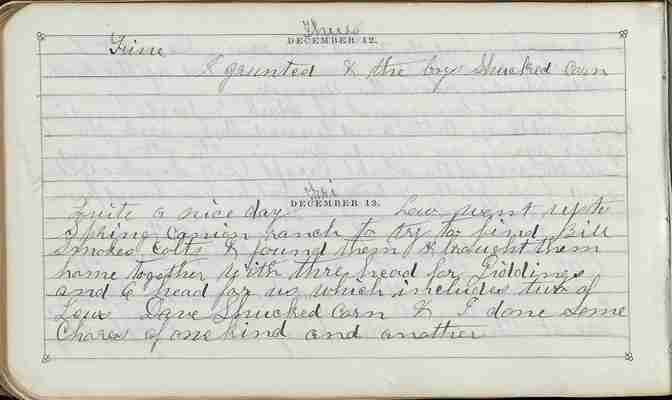 Thurs
DECEMBER 12.
Fine
I grunted & the boys Shucked Corn
Fri
DECEMBER 13.
Quite a nice day Lew went up to
Spring Canion ranch to try to find Bill
Smokes Colts & found them & brought them
home together with three head for Giddings
and 6 head for us which includes two of
Lews Dave Shucked Corn & I done Some
Chores of one kind and another